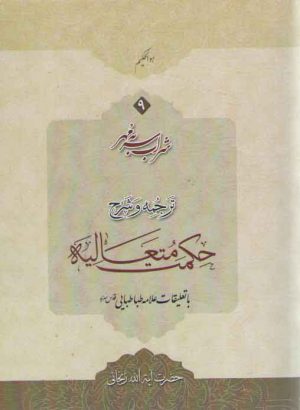 هوالحکیم
۹
شراب سر به مهر
ترجمه و شرح
حکمت متعالیه
با تعلیقات علامه طباطبایی قدس سره
حضرت آیة الله زنجانی